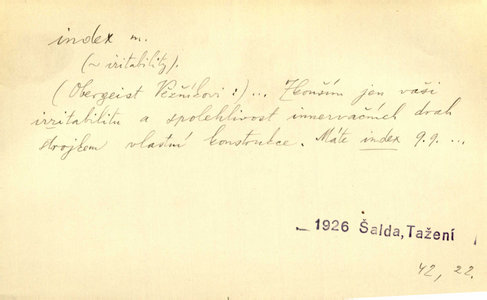 index m.
(~ iritability).
(Obergeist Vežníkovi :) ... Zkouším jen vaši
irritabilitu a spolehlivost innervačních drah
strojkem vlastní konstrukce. Máte index 9.9. ...
1926 Šalda, Tažení
42, 22.